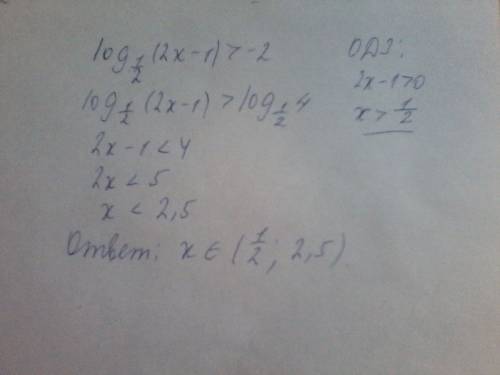 log_{1/2}(2x-1) > -2
log_{1/2}(2x-1) > log_{1/2}4
2x-1 < 4
2x < 5
x < 2,5
ОДЗ:
2x-1>0
x > 1/2
Ответ: x ∈ (1/2; 2,5)